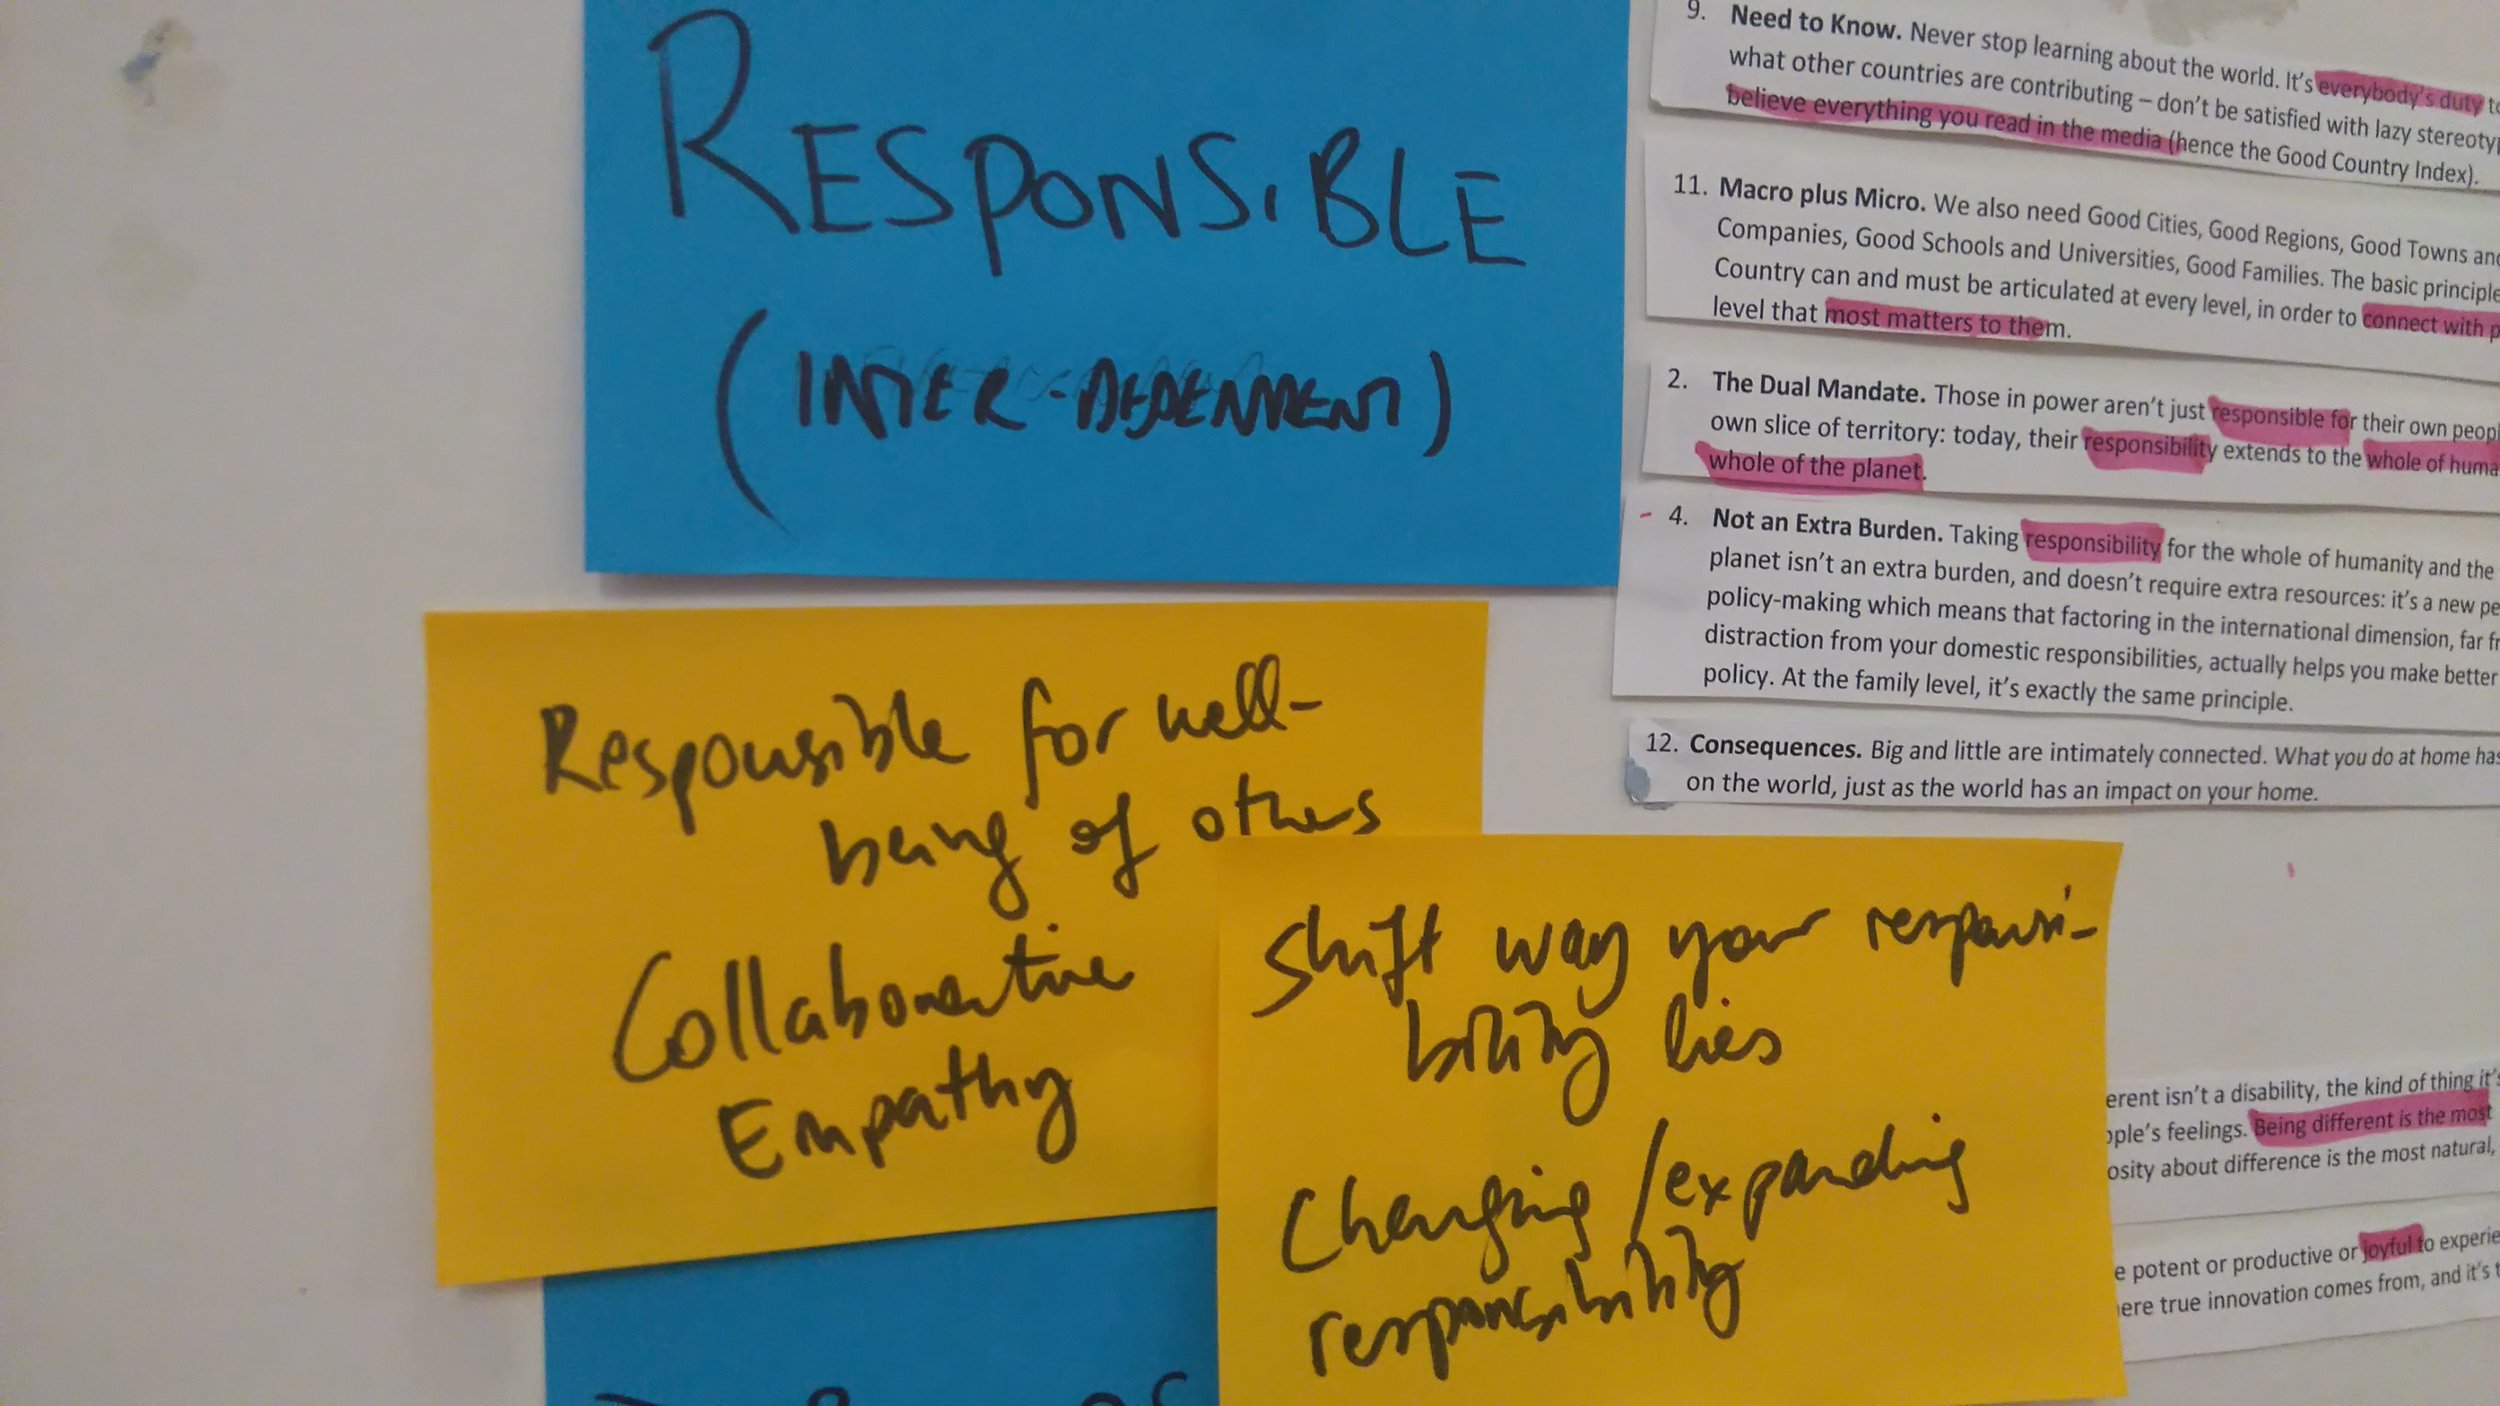 RESPONSIBLE
(INTER-DEPENDENT)
Responsible for well-
being of others
Collaborative
Empathy
Shift way your responsi-
bility lies
Changing/expanding
responsibility
9. Need to Know. Never stop learning about the world. It's everybody's duty to
what other countries are contributing – don't be satisfied with lazy stereotyp
believe everything you read in the media (hence the Good Country Index).
11. Macro plus Micro. We also need Good Cities, Good Regions, Good Towns and
Companies, Good Schools and Universities, Good Families. The basic principle
Country can and must be articulated at every level, in order to connect with p
level that most matters to them.
2. The Dual Mandate. Those in power aren't just responsible for their own peopl
own slice of territory: today, their responsibility extends to the whole of huma
whole of the planet.
4. Not an Extra Burden. Taking responsibility for the whole of humanity and the
planet isn't an extra burden, and doesn't require extra resources: it's a new pe
policy-making which means that factoring in the international dimension, far fr
distraction from your domestic responsibilities, actually helps you make better
policy. At the family level, it's exactly the same principle.
12. Consequences. Big and little are intimately connected. What you do at home has
on the world, just as the world has an impact on your home.
erent isn't a disability, the kind of thing it's
ople's feelings. Being different is the most
osity about difference is the most natural,
e potent or productive or joyful to experie
ere true innovation comes from, and it's t